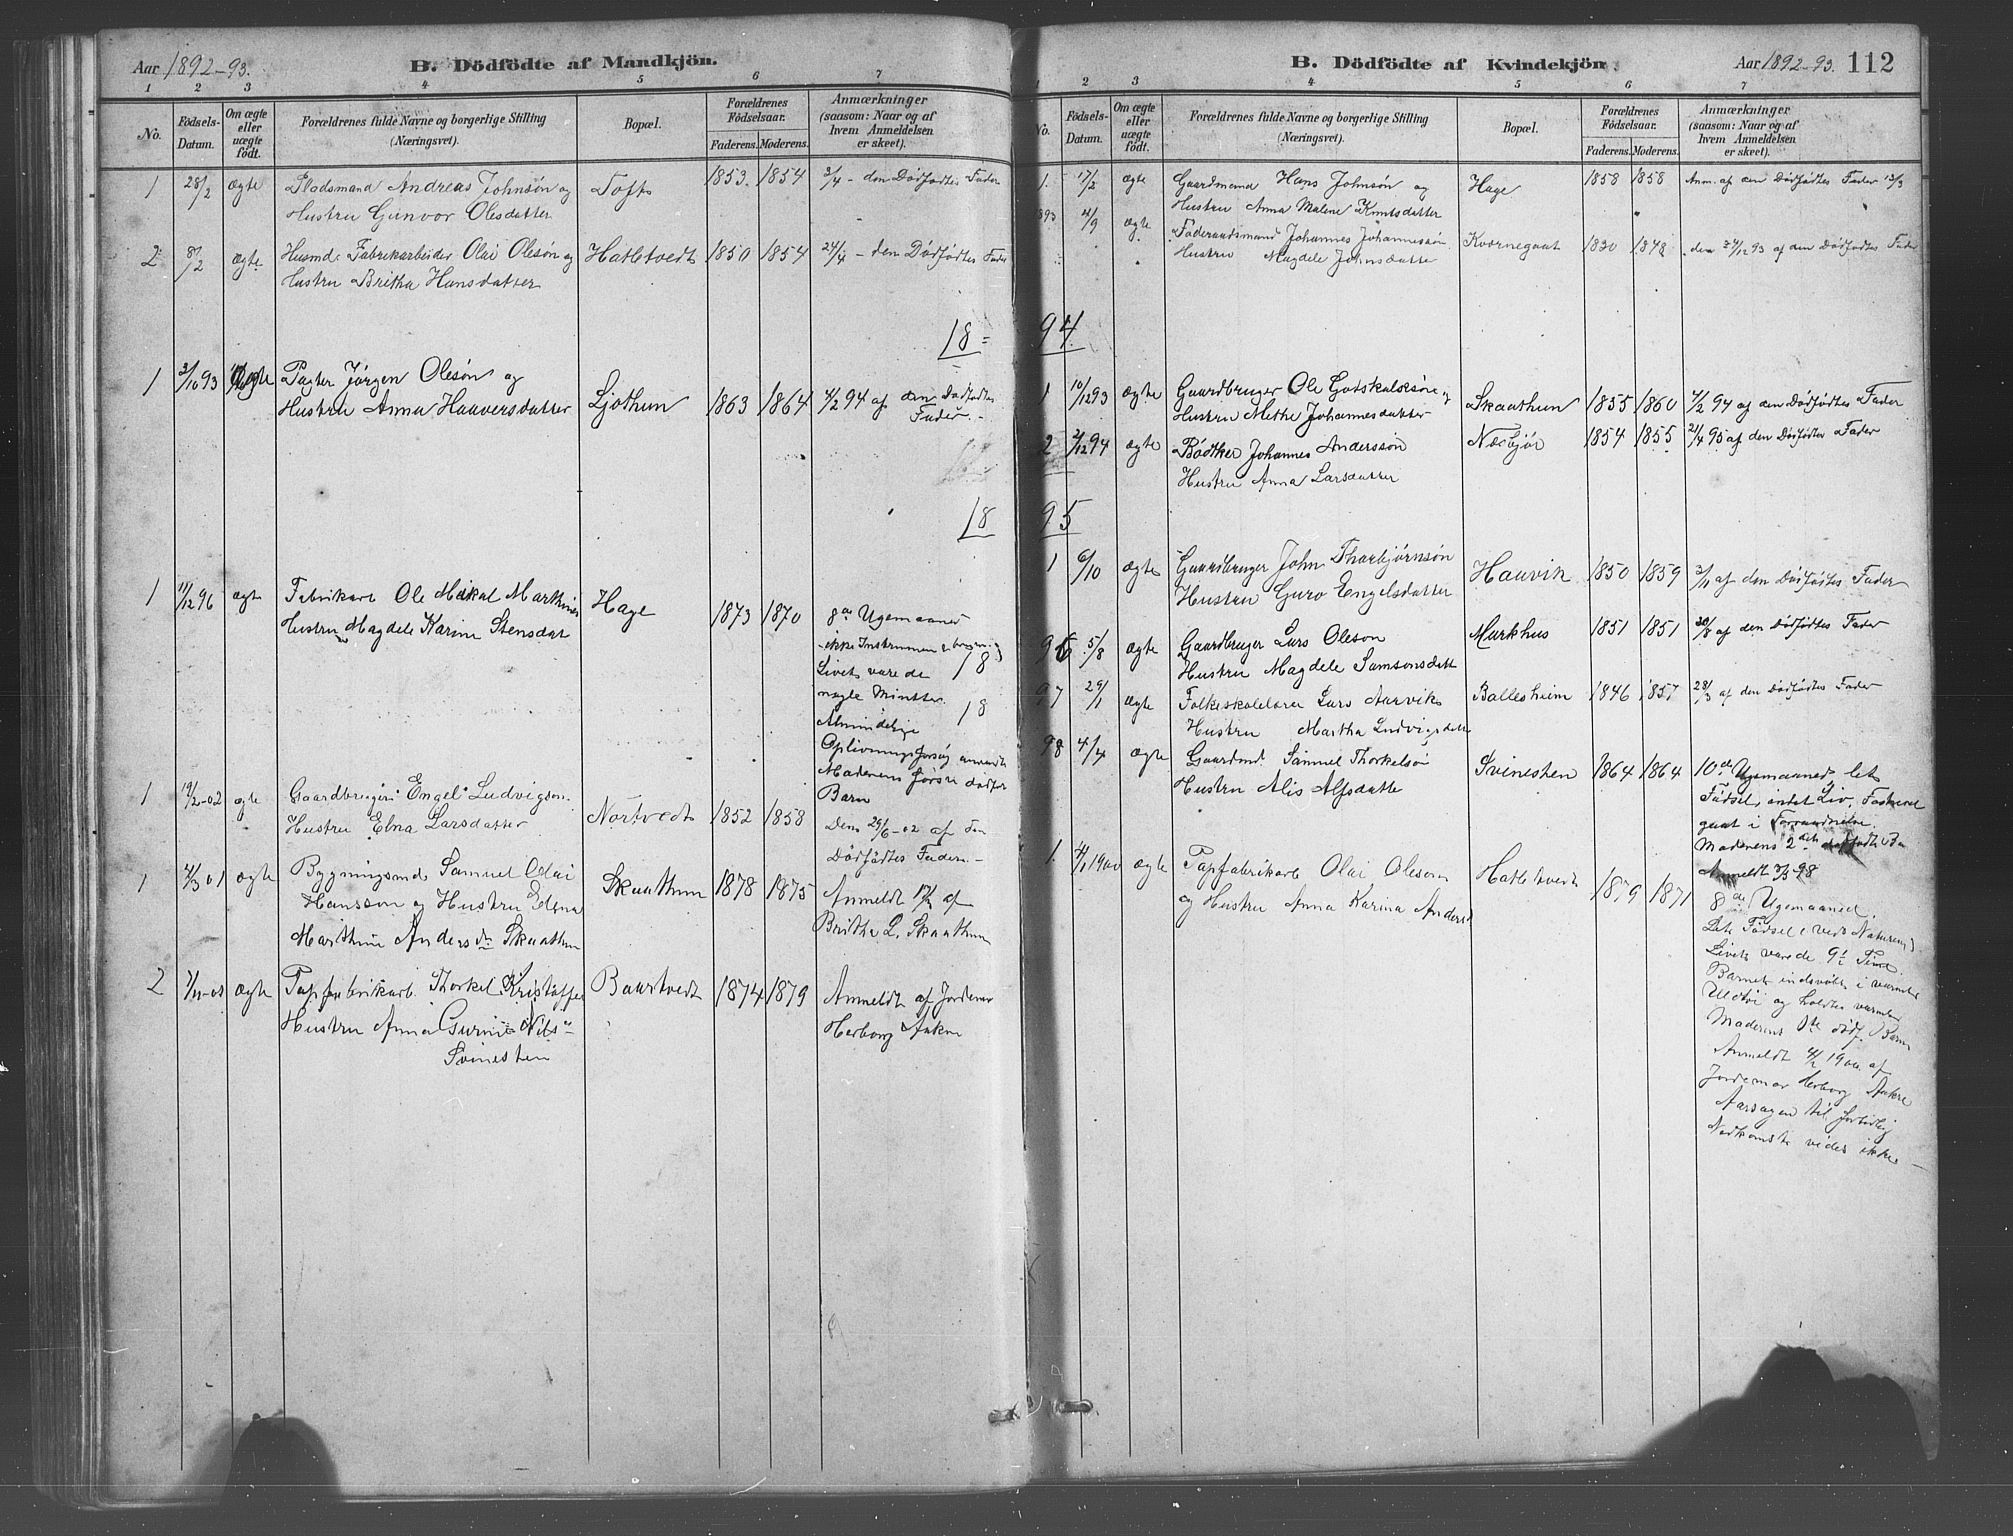 Aar 1892-93.
B. Dödfödte af Mandkjön.
1 2 3 4 5 6 7
No.
Födsels-
Datum.
Om ægte
eller
uægte
födt.
Forældrenes fulde Navne og borgerlige Stilling
(Næringsvei).
Bopæl.
Forældrenes
Födselsaar.
Faderens. Moderens.
Anmærkninger
(saasom: Naar og af
hvem Anmeldelsen
er skeet).
1 28/2 ægte Pladsmand Andreas Johnsøn og Toft 1853. 1854 3/4 - den Dødfødtes Fader
Hustru Gunvor Olesdatter
2 ægte Husmd. Fabrikarbeider Olai Olesøn og Hatletvedt 1850 1854 24/4 - den Dødfødtes Fader
Hustru Britha Hansdatter
18
1 3/10 93 ægte Pagter Jørgen Olesøn og
Hustru Anna Haaversdatter Ljothun 1863 1864 4/2 94 af den Dødfødtes
Fader.
18
1 11/12 96 ægte Fabrikarb Ole Mikal Marthines Hage 1873 1870 8de Ugemaaned
Hustru Magdele Karine Stensdat
ikke Instrumen
Livet varede 18
nogle Minutter. 18
Almindelige
Oplivningsforsøg anvendt
Moderens første dødfør
Barn
1 19/2-02 ægte Gaardbruger Engel Ludvigsen Nortvedt 1852 1858
Hustru Edna Larsdatter
Dem 29/6-02 af den
Dødfødtes Fader.
1 4/3 01 ægte Bygningsmd Samuel Olai Skaathun 1878 1875 Anmeldt af
Hansson og Hustru Edena
Marthine Anders dr Skaathun
Britha L. Skaathun
2 ægte Papfabrikarb. Thorkel Kristoffer Baartvedt 1874 1879 Anmeldt af Jordemor
Hustru Anna Gurine Nils
Svinesten
Herborg Ankre
B. Dödfödte af Kvindekjön.
Aar 1892-93. 112
1 2 3 4 5 6 7
No.
Födsels-
Datum.
Om ægte
eller
uægte
födt.
Forældrenes fulde Navne og borgerlige Stilling
(Næringsvei).
Bopæl.
Forældrenes
Födselsaar.
Faderens. Moderens.
Anmærkninger
(saasom: Naar og af
hvem Anmeldelsen
er skeet).
1. 17/2 ægte Gaardmand Hans Johnsøn og Hage 1858 1858 Anm. af den Dødfødtes Fader 13/3
Hustru Anna Malene Knutsdatter
1893 4/9 ægte Føderaadsmand Johannes Johannessøn Kvernegaat 1830 1848 den 24/12 93 af den Dødfødtes Fader
Hustru Magdele Johnsdatte
94
1 10/12 93 ægte Gaardbruger Ole Gotskalksøn og Skaathun 1855 1860 4/2 94 af den Dødfødtes Fader
Hustru Methe Johannesdatter
2 2/12 94 ægte Bødtker Johannes Anderssøn Næsbjør 1854 1855 21/4 95 af den Dødfødtes Fader
Hustru Anna Larsdatter
95
1 6/10 ægte Gaardbruger John Thorbjørnsøn Hauvik 1850 1859 3/11 af den Dødfødtes Fader
Hustru Guro Engelsdatter
96 5/8 ægte Gaardbruger Lars Olesøn Markhus 1851 1851 30/8 af den Dødfødtes Fader
Hustru Magdele Samsonsdatt
97 29/1 ægte Folkeskolelærer Lars Aarvik Ballesheim 1846 1857 28/3 af den Dødfødtes Fader
Hustru Martha Ludvigsdatte
98 4/4 ægte Gaardmd. Samuel Thorkelsøn Svinesten 1864 1864 10de Ugemaaned let
Hustru Alis Alfsdatte
Fødsel, intet Liv, Fosteret
gaat i Forraadnelse.
Moderens 2det dødfødte Ba
Anmeldt 98
1. 4/1 1900 ægte Papfabrikarb Olai Olesen Hatletvedt 1879 1871
og Hustru Anna Karina Andersd
8de Ugemaaned.
Let Fødsel (ved Naturen)
Livet varede 9 Time
Barnet indsvøbt i varmt
Uldtøi og holdtes varmt
Moderens dødf. Barn
Anmeldt 1900 af
Jordemor Herborg Ankre
Aarsagen til fortidlig
Nedkomst vides ikke